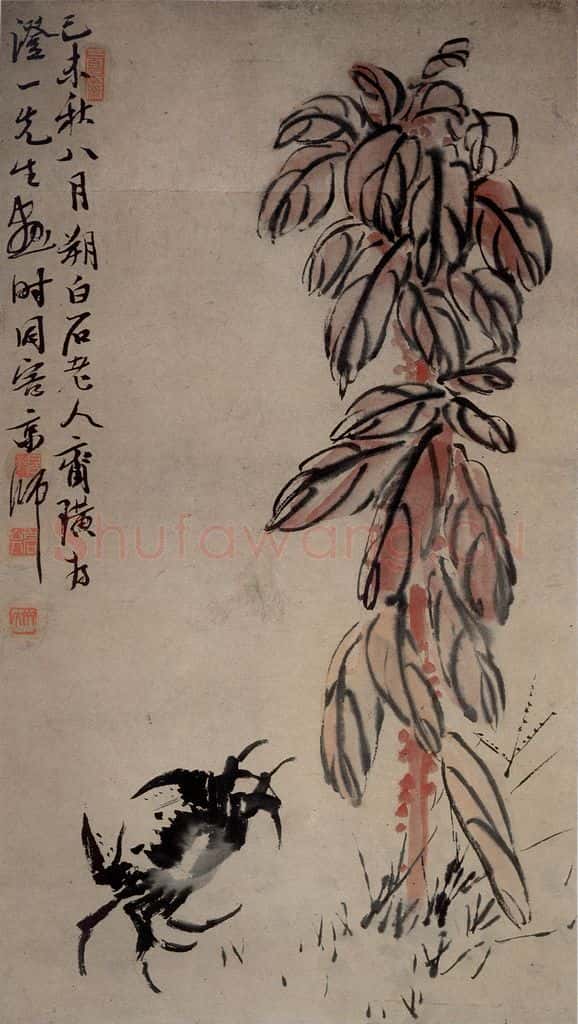 己未秋八月朔白石老人齊璜为
澄一先生畫时同客京師
Shufawang.CN